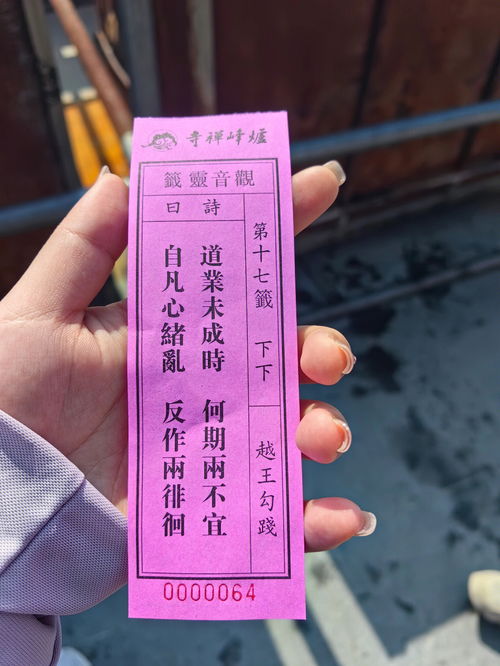 爐峰禪寺
觀音靈籤
第十七籤 下下
越王勾踐
詩曰
道業未成時 何期兩不宜
自凡心緒亂 反作兩徘徊
0000064